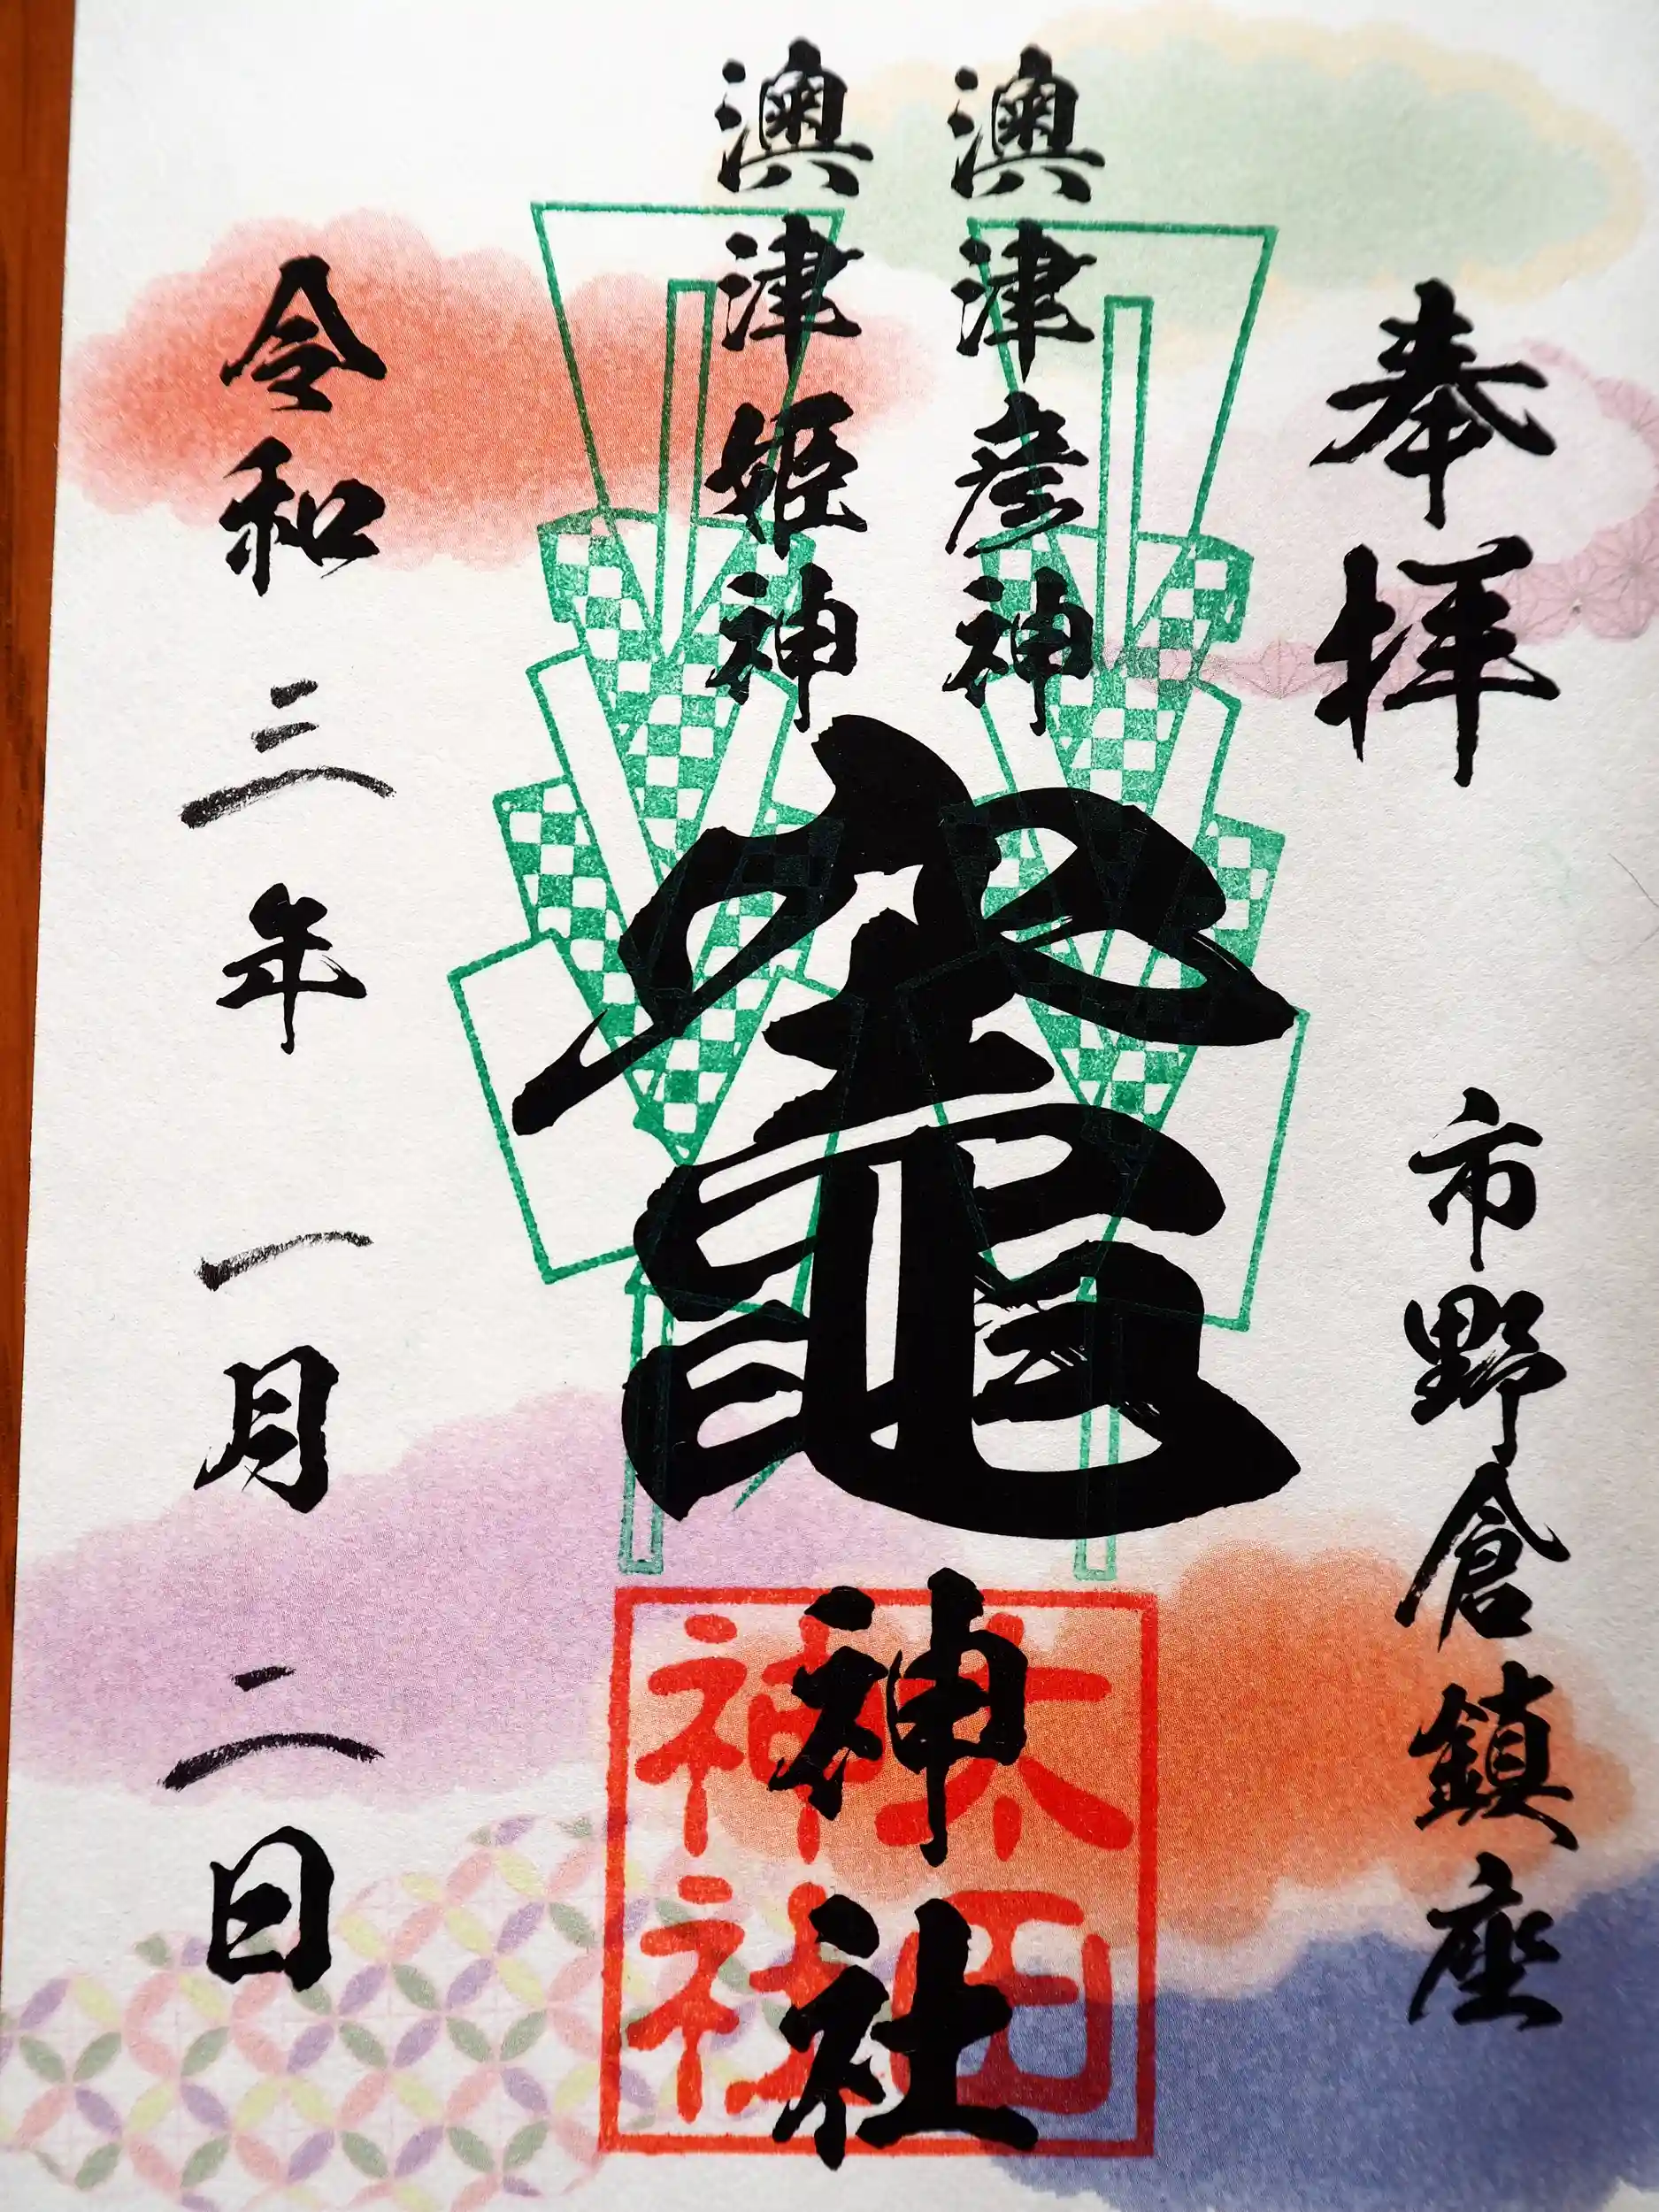 奉拝
市野倉鎮座
澳津彦神
澳津姫神
竈神社
太田神社
令和三年一月二日